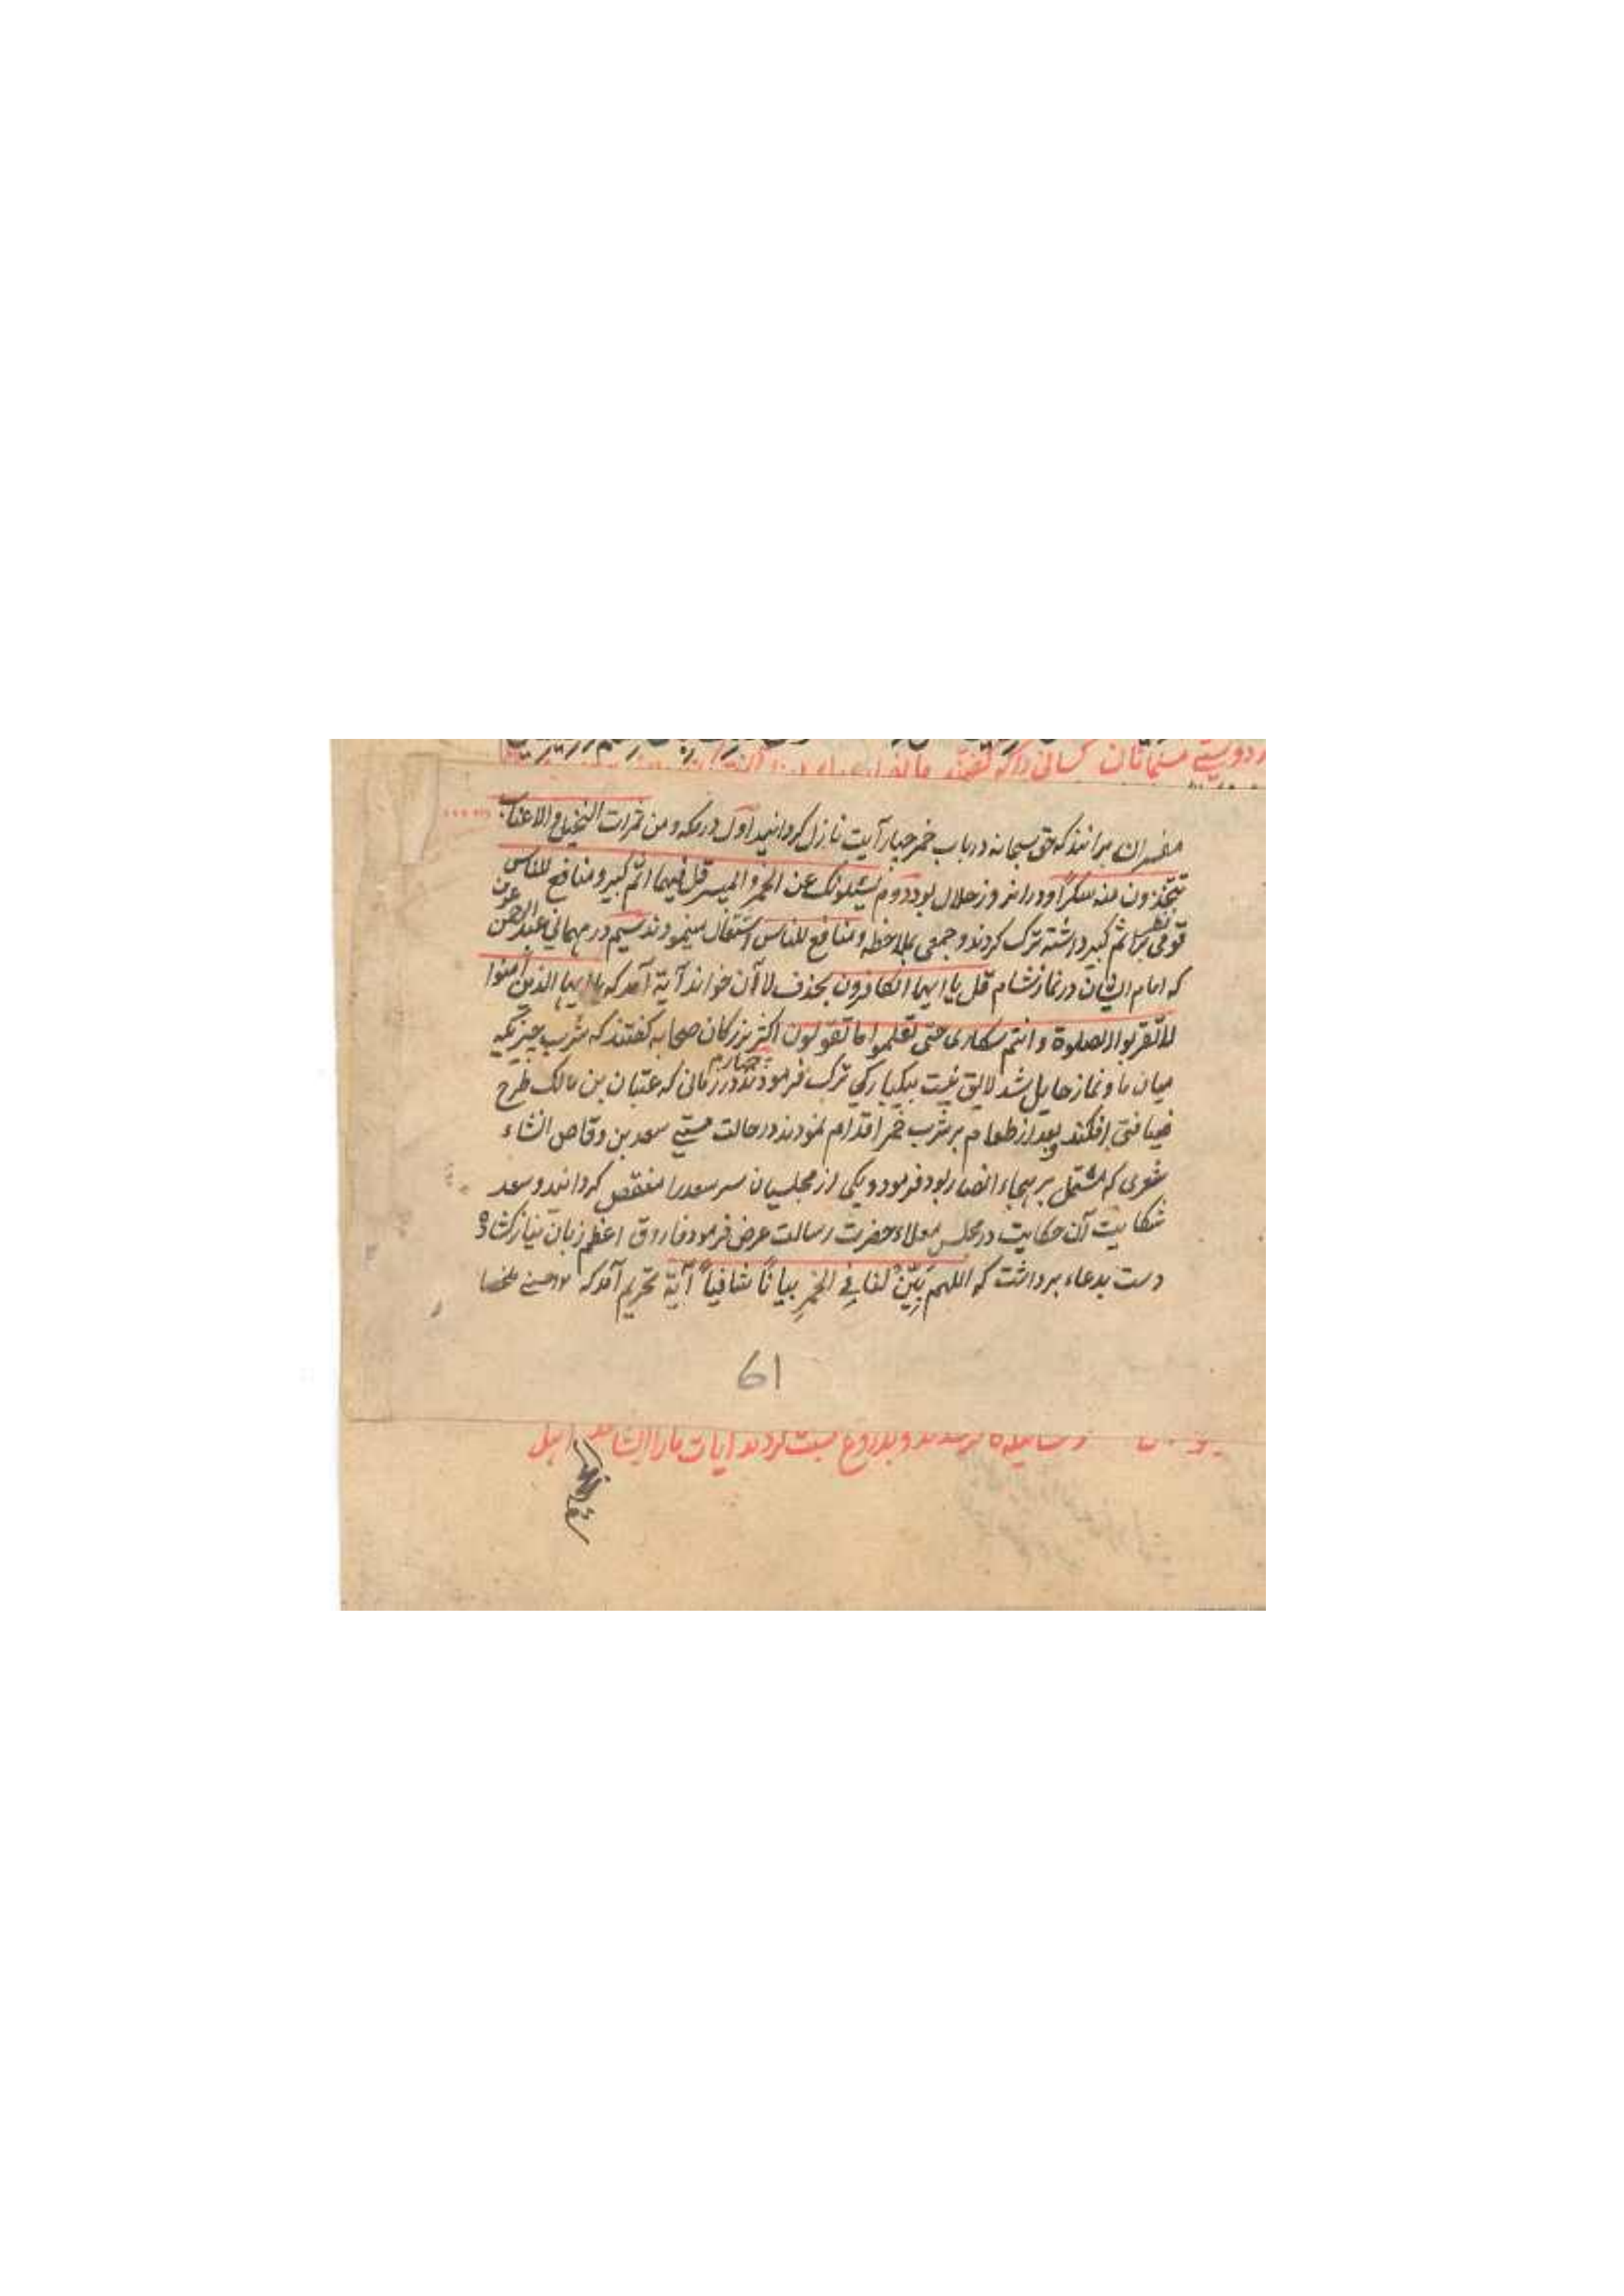 مفسران برانند که حق سبحانه در باب خمر چهار آیت نازل گردانید اول در مکه و من ثمرات النخیل و الاعناب
تتخذون منه سکراً و در انروز حلال بود دوم یسئلونک عن الخمر و المیسر قل فیهما اثم کبیر و منافع للناس
قومی نظر بر اثم کبیر داشته ترک کردند و جمعی بملاحظه و منافع للناس اشتغال مینمودند سیم در مهمانی عبد الرحمن عوف
که امام ایشان در نماز شام قل یا ایها الکافرون بحذف لا آن خواند آیة آمد که یا ایها الذین آمنوا
لا تقربوا الصلوة و انتم سکاری حتی تعلموا ما تقولون اکثر بزرگان صحابه گفتند که شرب چیزیکه
میان ما و نماز حایل شد لایق نیست بیکبارگی ترک فرمودند چهارم در زمانی که عتبان بن مالک طرح
ضیافتی افکند و بعد از طعام بر شرب خمر اقدام نمودند در حالت مستی سعد بن وقاص انشاء
شعری که مشتمل بر هجاء انصار بود فرمود و یکی از مجلسیان سر سعد را منقص گردانید و سعد
شکایت آن حکایت در مجلس معلاء حضرت رسالت عرض فرمود فاروق اعظم زبان نیاز گشاد و
دست بدعاء برداشت که اللهم بَیِّنْ لنا فِی الخمرِ بیاناً شافیاً آیة تحریم آمد که ۱۲ حسینی ملخصا
61
و بدروغ نسبت کردند ایات مارا ایشانند اهل